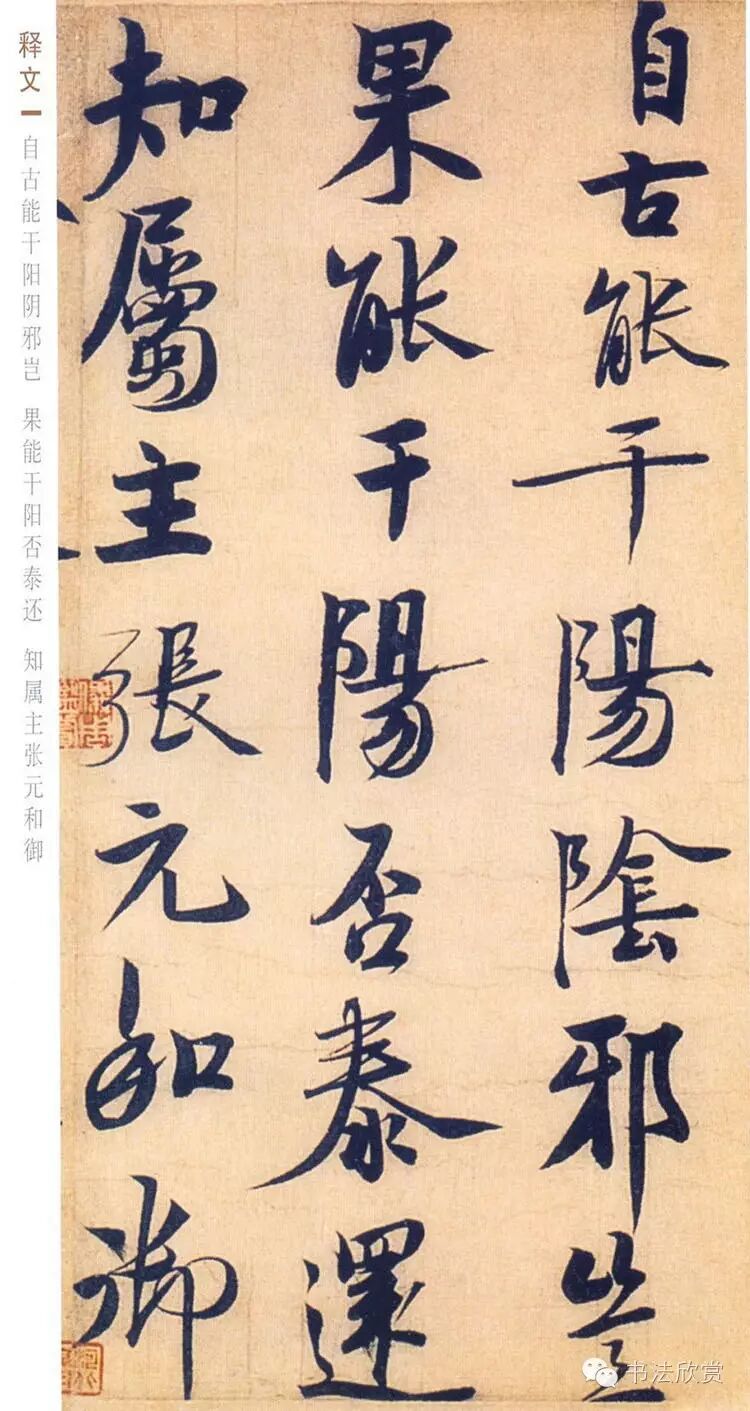 自古能干陽陰邪豈
果能干陽否泰還
知屬主張元和御
释文
自古能干阳阴邪岂 果能干阳否泰还 知属主张元和御
书法欣赏